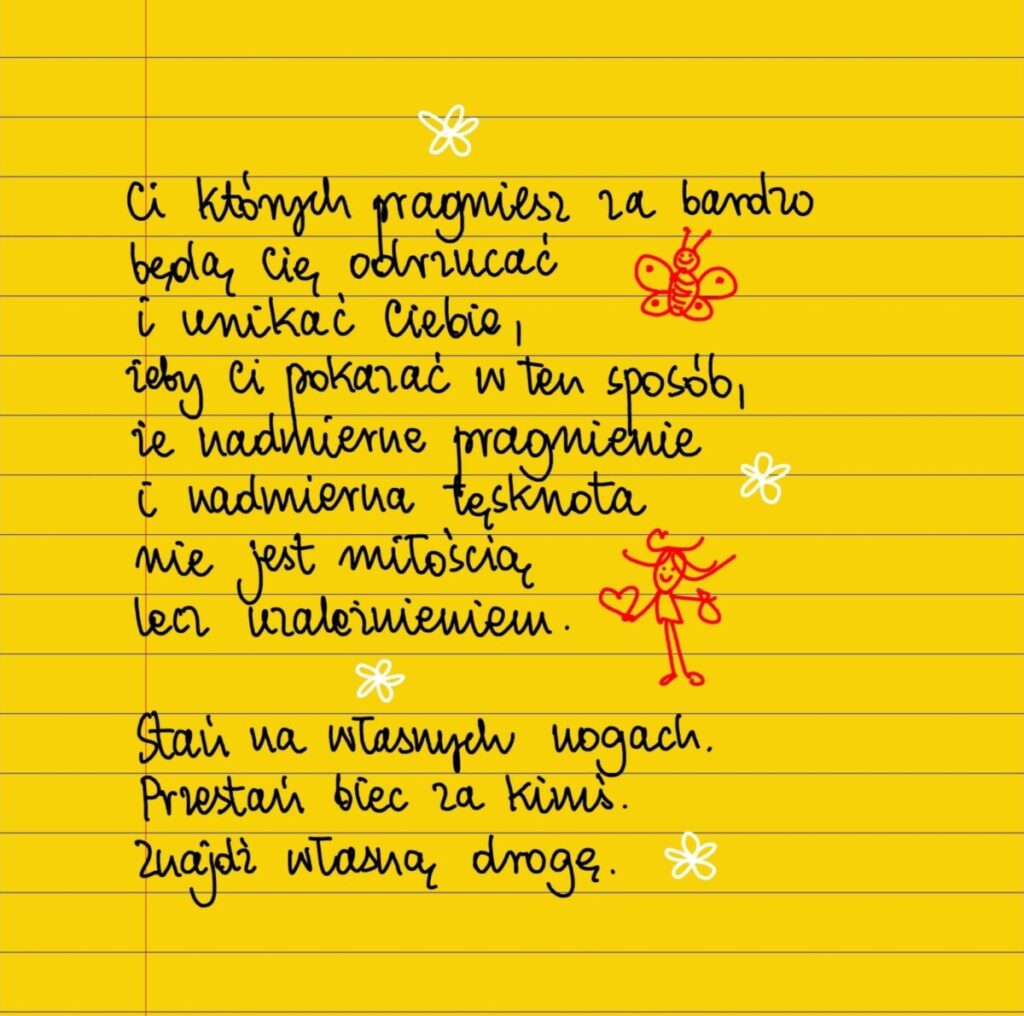 Ci których pragniesz za bardzo
będą Cię odrzucać
i unikać Ciebie,
żeby Ci pokazać w ten sposób,
że nadmierne pragnienie
i nadmierna tęsknota
nie jest miłością
lecz uzależnieniem.
Stań na własnych nogach.
Przestań biec za kimś.
Znajdź własną drogę.